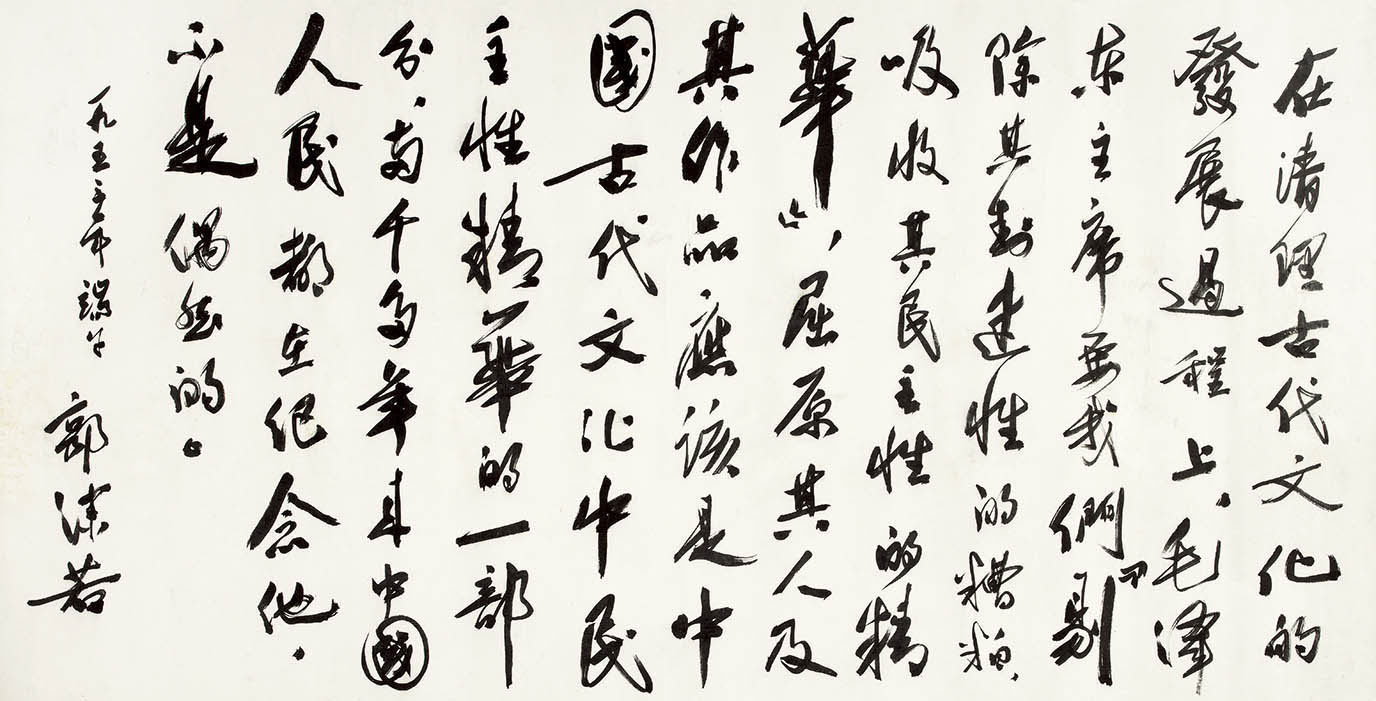 在清理古代文化的
發展過程上，毛澤
东主席要我們“剔
除其封建性的糟粕，
吸收其民主性的精
華”，屈原其人及
其作品應該是中
國古代文化中民
主性精華的一部
分，两千多年来中國
人民都在纪念他，
不是偶然的。
一九五三年端午
郭沫若